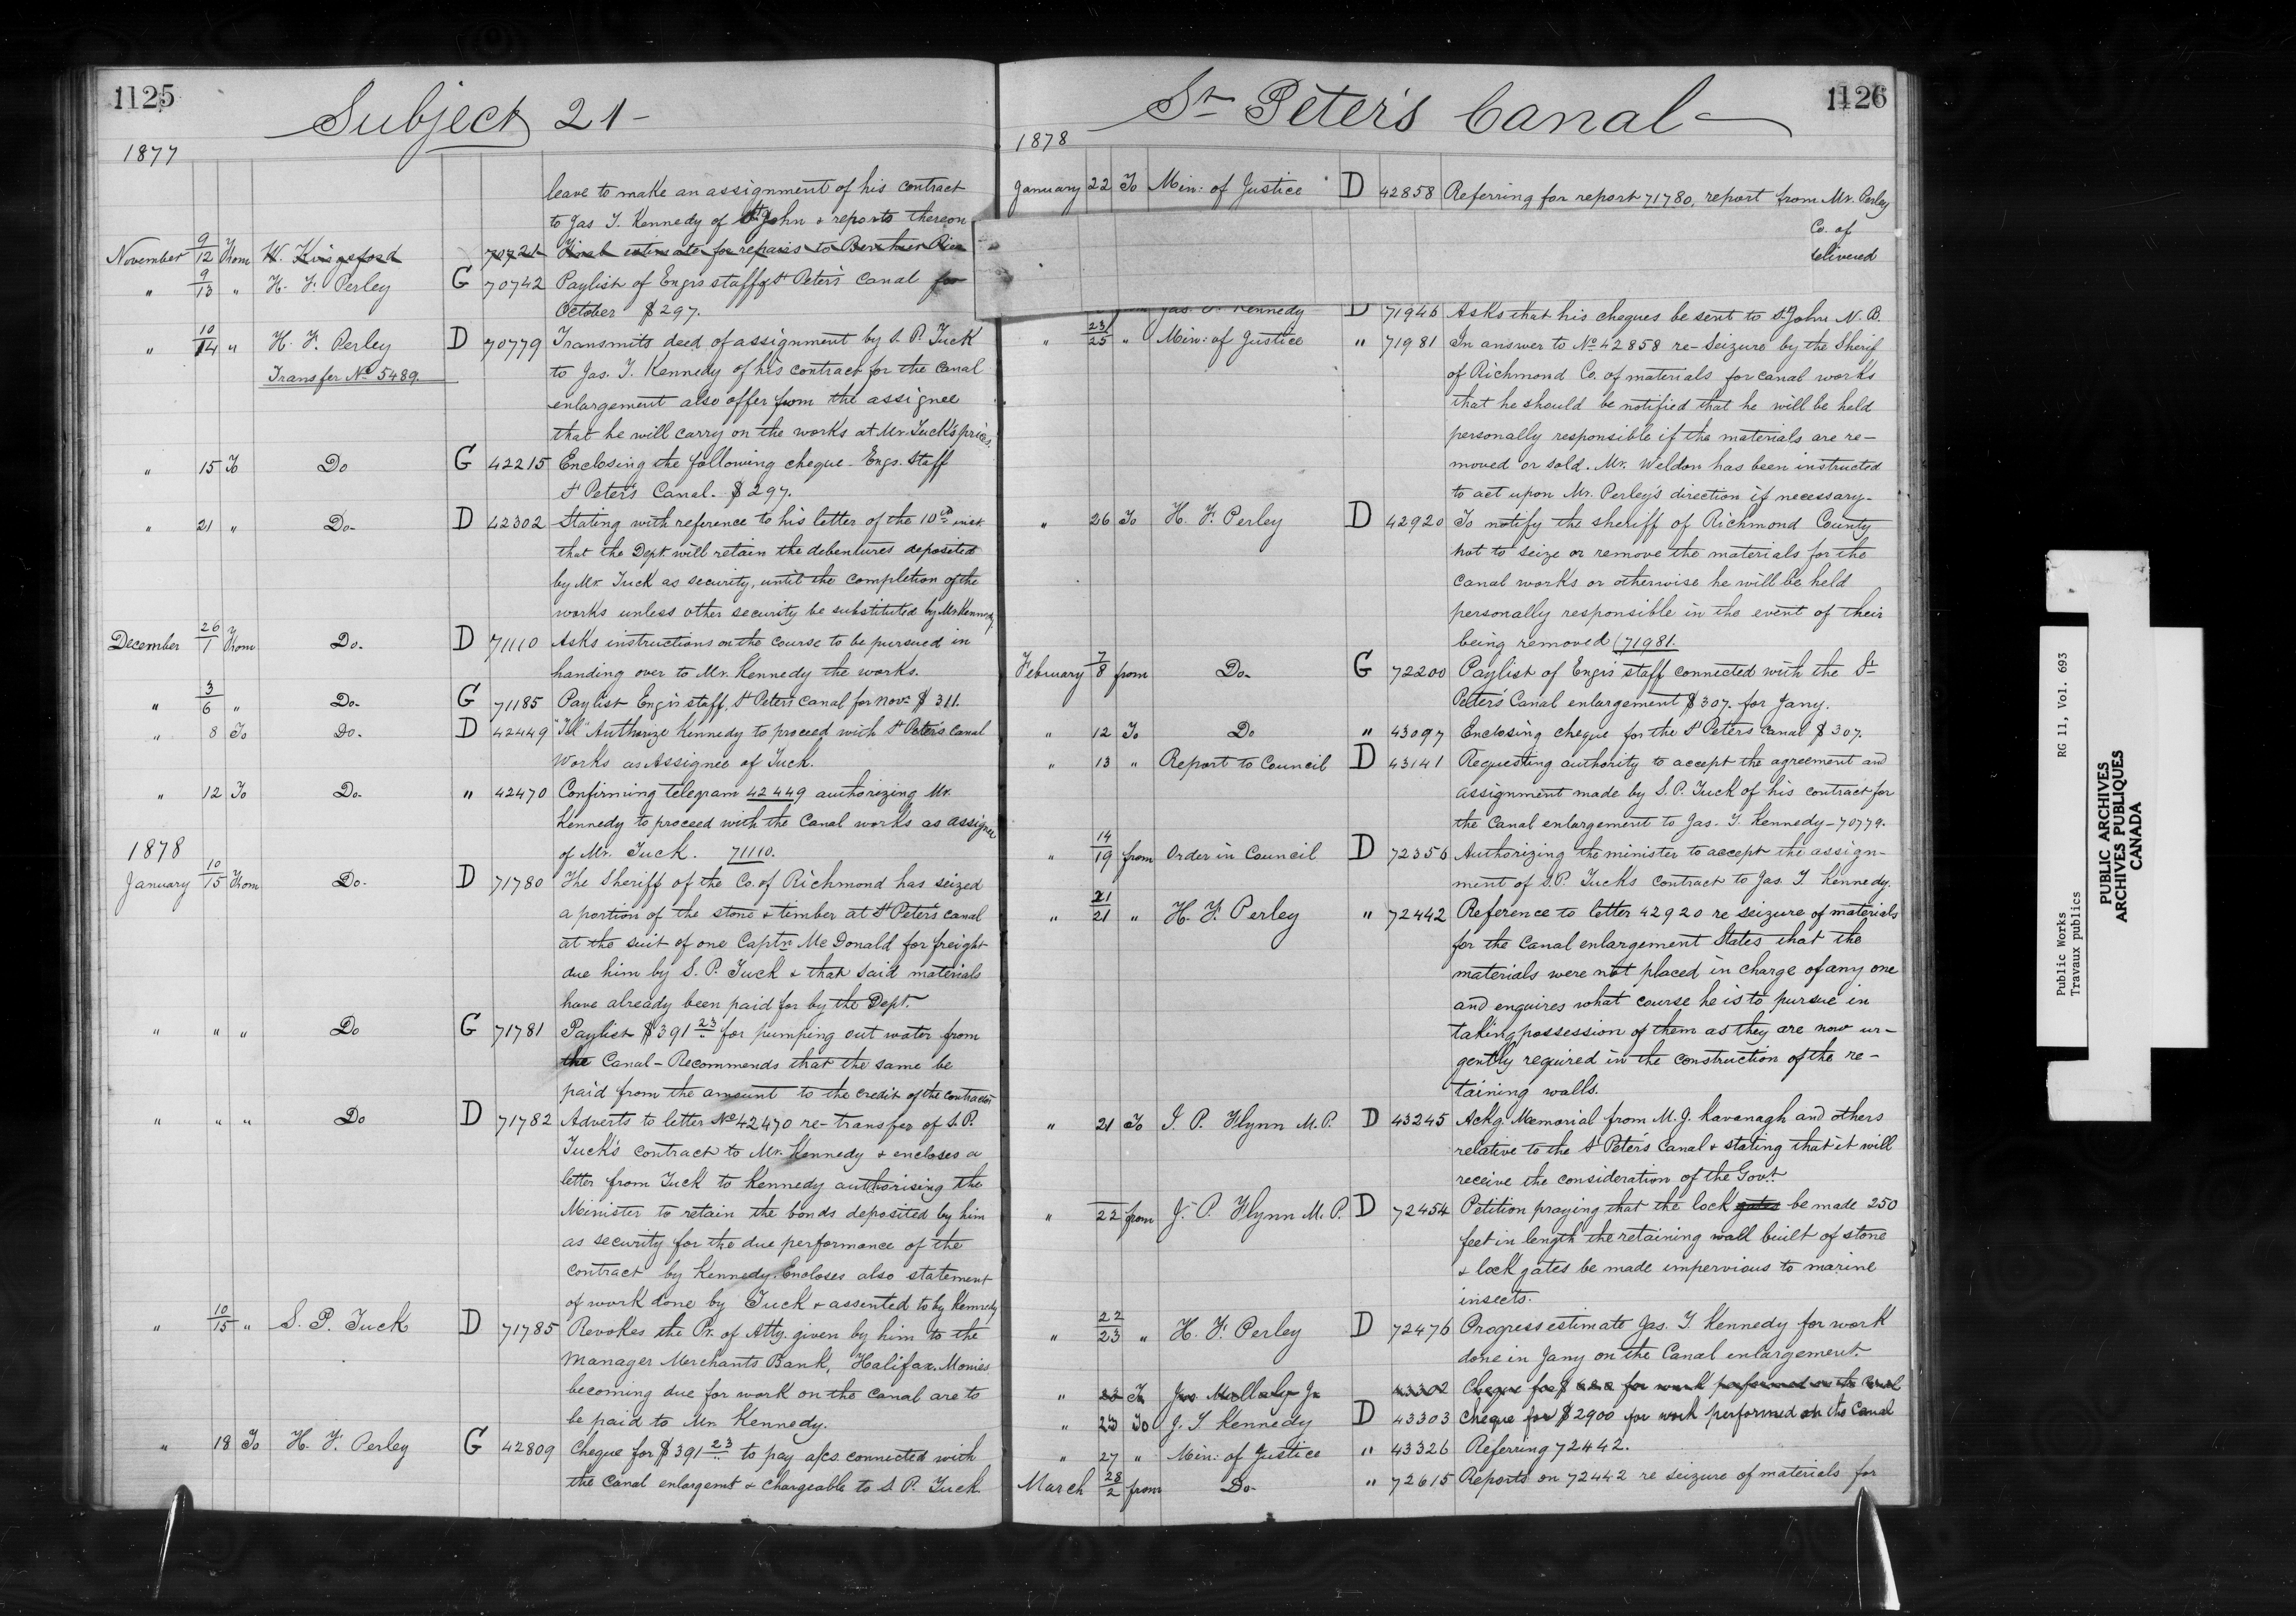 1125
Subject 21-
1877
leave to make an assignment of his contract
to Jas T. Kennedy of St John & reports thereon
November 9/12 From W. Kingsford 70721 Final estimate for repairs to
" 9/13 " H. F. Perley G 70742 Paylist of Engrs staff St Peter's Canal for
October $297.
" 10/14 " H. F. Perley D 70779 Transmits deed of assignment by S. P. Tuck
Transfer No 5489. to Jas. T. Kennedy of his contract for the Canal
enlargement also offer from the assignee
that he will carry on the works at Mr. Tuck's prices.
" 15 To Do G 42215 Enclosing the following cheque - Engs. Staff
St Peter's Canal. $297.
" 21 " Do- D 42302 Stating with reference to his letter of the 10th inst
that the Dept. will retain the debentures deposited
by Mr Tuck as security, until the completion of the
works unless other security be substituted by Mr Kennedy
December 26/1 From Do. D 71110 Asks instructions on the course to be pursued in
handing over to Mr. Kennedy the works.
" 3/6 " Do- G 71185 Paylist Engrs staff, St Peters Canal for Novr $311.
" 8 To Do. D 42449 "Tel" Authorize Kennedy to proceed with St Peters Canal
Works as Assignee of Tuck.
" 12 To Do- " 42470 Confirming telegram 42449 authorizing Mr.
Kennedy to proceed with the Canal works as assignee
of Mr. Tuck. 71110.
1878
January 10/15 From Do- D 71780 The Sheriff of the Co. of Richmond has seized
a portion of the stone & timber at St Peter's Canal
at the suit of one Captn Mc Donald for freight
due him by S. P. Tuck & that said materials
have already been paid for by the Dept.
" " " Do G 71781 Paylist $391 23 for pumping out water from
the Canal - Recommends that the same be
paid from the amount to the credit of the contractor
" " " Do D 71782 Adverts to letter No 42470 re-transfer of S. P.
Tuck's contract to Mr. Kennedy & encloses a
letter from Tuck to Kennedy authorising the
Minister to retain the bonds deposited by him
as security for the due performance of the
contract by Kennedy. Encloses also statement
of work done by Tuck & assented to by Kennedy
" 10/15 " S. P. Tuck D 71785 Revokes the Pr. of Atty. given by him to the
Manager Merchants Bank, Halifax. Monies
becoming due for work on the Canal are to
be paid to Mr. Kennedy.
" 18 To H. F. Perley G 42809 Cheque for $391 23 to pay a/cs. connected with
the Canal enlargemt & chargeable to S. P. Tuck
1126
St Peter's Canal
1878
January 22 To Min: of Justice D 42858 Referring for report 71780, report from Mr. Perley
Co. of
delivered
Jas. T. Kennedy D 71946 Asks that his cheques be sent to St John N. B.
" 23/25 " Min: of Justice " 71981 In answer to No 42858 re-Seizure by the Sherif
of Richmond Co. of materials for canal works
that he should be notified that he will be held
personally responsible if the materials are re-
moved or sold. Mr. Weldon has been instructed
to act upon Mr. Perley's direction if necessary-
" 26 To H. F. Perley D 42920 To notify the sheriff of Richmond County
not to seize or remove the materials for the
Canal works or otherwise he will be held
personally responsible in the event of their
being removed (71981.
February 7/8 from Do- G 72200 Paylist of Engrs staff connected with the St
Peter's Canal enlargement $307. for Jany.
" 12 To Do " 43097 Enclosing cheque for the St Peters Canal $307.
" 13 " Report to Council D 43141 Requesting authority to accept the agreement and
assignment made by S. P. Tuck of his contract for
the Canal enlargement to Jas. T. Kennedy - 70779.
" 14/19 from Order in Council D 72356 Authorizing the minister to accept the assign-
ment of S. P. Tucks contract to Jas. T Kennedy.
" 21/21 " H. F. Perley " 72442 Reference to letter 42920 re seizure of materials
for the Canal enlargement States that the
materials were not placed in charge of any one
and enquires what course he is to pursue in
taking possession of them as they are now ur-
gently required in the construction of the re-
taining walls.
" 21 To J. P. Flynn M. P. D 43245 Ackg. Memorial from M. J. Kavanagh and others
relative to the St Peter's Canal & stating that it will
receive the consideration of the Govt.
" 22 from J. P. Flynn M. P. D 72454 Petition praying that the lock gates be made 250
feet in length the retaining wall built of stone
& lock gates be made impervious to marine
insects.
" 22/23 " H. F. Perley D 72476 Progress estimate Jas. T. Kennedy for work
done in Jany on the Canal enlargement.
" 23 To 43302 Cheque for $ for work performed on the Canal
" 23 To J. T Kennedy D 43303 Cheque for $2900 for work performed on the Canal
" 27 " Min: of Justice " 43326 Referring 72442.
March 28/2 from Do- " 72615 Reports on 72442 re seizure of materials for
Public Works RG 11, Vol. 693
Travaux publics
PUBLIC ARCHIVES
ARCHIVES PUBLIQUES
CANADA